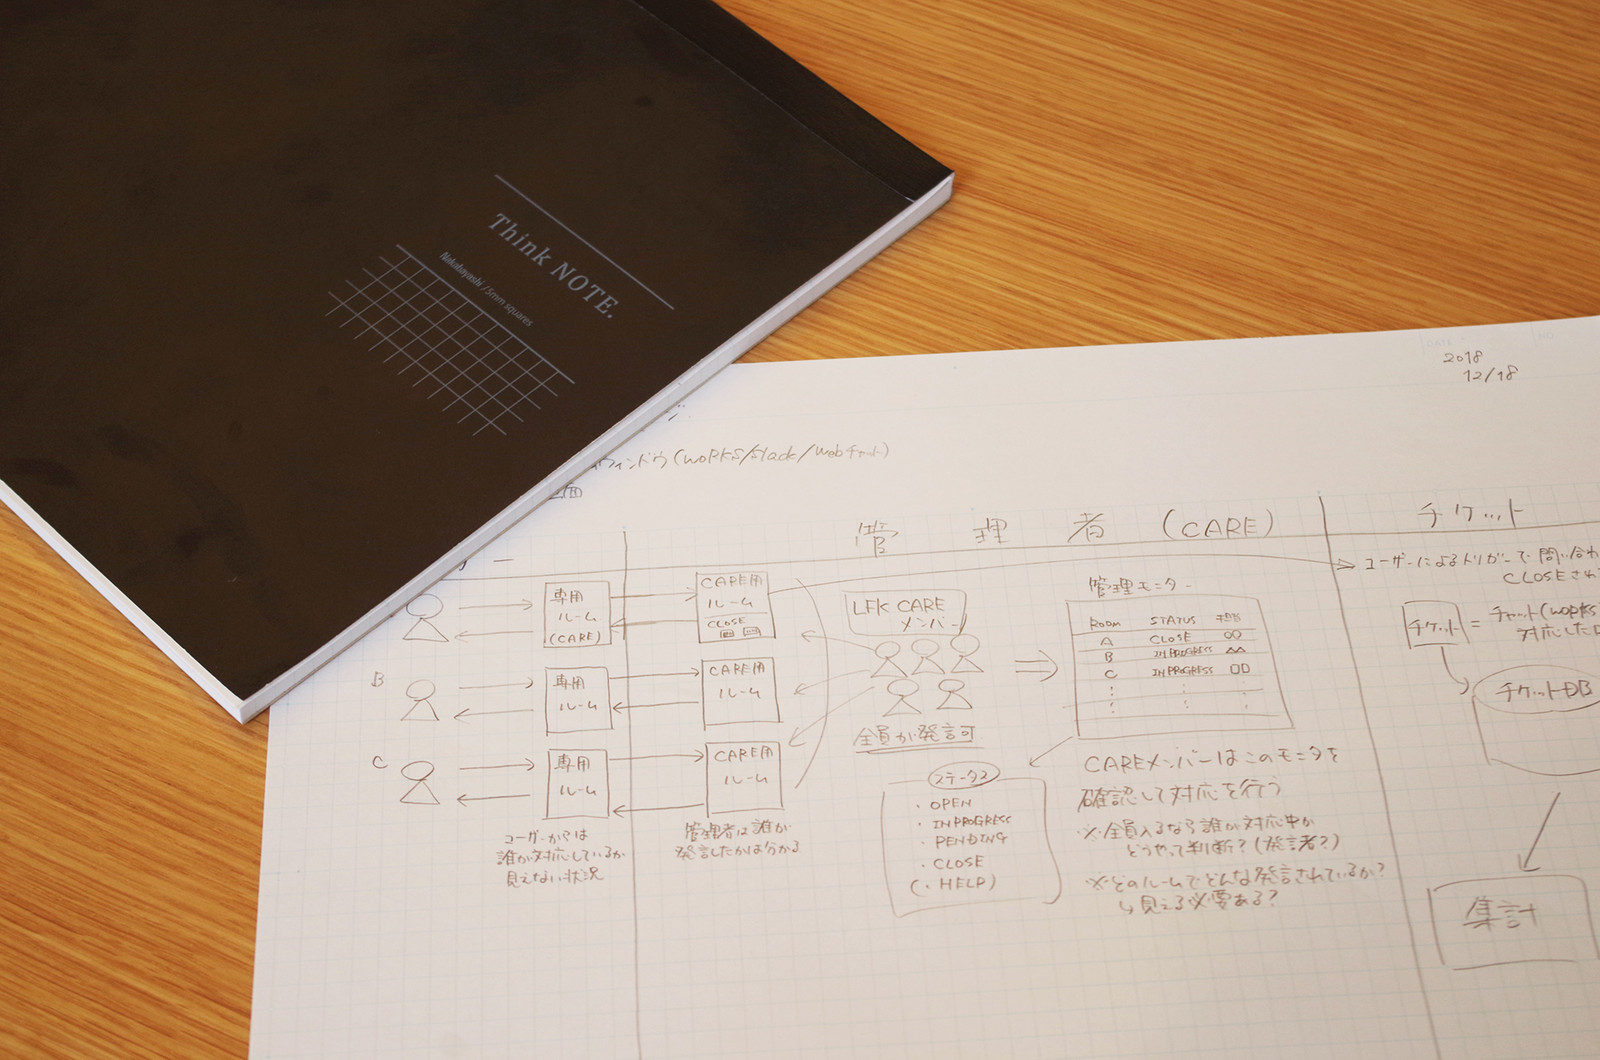 Think NOTE.
Nakabayashi / 5mm squares
DATE
NO.
2018
12/18
ウィンドウ (WORKS/Slack/Webチャット)
管理者 (CARE)
チケット
ユーザーによるトリガーで問い合わ
CLOSEされ
専用
ルーム
(CARE)
CARE用
ルーム
CLOSE
LFK CARE
メンバー
管理モニター
ROOM STATUS
A CLOSE ○○
B INPROGRESS △△
C INPROGRESS □□
チケット = チャット(WORKS
対応した
B
専用
ルーム
CARE用
ルーム
全員が発言可
チケットDB
C
専用
ルーム
CARE用
ルーム
ステータス
・OPEN
・INPROGRESS
・PENDING
・CLOSE
(・HELP)
CAREメンバーはこのモニタを
確認して対応を行う
※全員入るなら誰が対応中か
どうやって判断?(発言者?)
※どのルームでどんな発言されているか?
↳見える必要ある?
ユーザーからは
誰が対応しているか
見えない状況
管理者は誰が
発言したかは分かる
集計